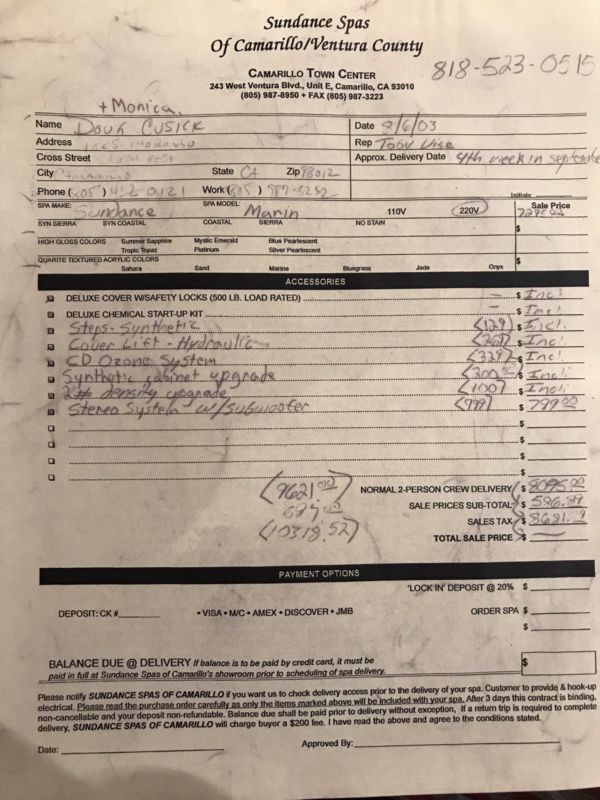 Sundance Spas
Of Camarillo/Ventura County
818-523-0515
CAMARILLO TOWN CENTER
243 West Ventura Blvd., Unit E, Camarillo, CA 93010
(805) 987-8950 + FAX (805) 987-3223
+ Monica
Name Doug Cusick Date 9/6/03
Address Rep Toby
Cross Street Approx. Delivery Date 4th week in September
City Camarillo State CA Zip 93012
Phone (805) 482 0121 Work (805) 987-5252 Initials:
SPA MAKE: Sundance SPA MODEL: Marin 110V 220V Sale Price
SYN SIERRA SYN COASTAL COASTAL SIERRA NO STAIN $
HIGH GLOSS COLORS Summer Sapphire Mystic Emerald Blue Pearlescent
Tropic Topaz Platinum Silver Pearlescent
QUARITE TEXTURED ACRYLIC COLORS $
Sahara Sand Marine Bluegrass Jade Onyx
ACCESSORIES
DELUXE COVER W/SAFETY LOCKS (500 LB. LOAD RATED) — $ Incl
DELUXE CHEMICAL START-UP KIT — $ Incl
Steps - Synthetic <129> $ Incl.
Cover Lift - Hydraulic $ Incl.
CD Ozone System <329> $ Incl.
Synthetic cabinet upgrade <300> $ Incl.
2# density upgrade <100> $ Incl.
Stereo System w/subwoofer <999> $ 799.00
$
$
$
$
(9621.00) NORMAL 2-PERSON CREW DELIVERY $ 8095.00
SALE PRICES SUB-TOTAL $ 586.89
(10318.52) SALES TAX $
TOTAL SALE PRICE $ —
PAYMENT OPTIONS
'LOCK IN' DEPOSIT @ 20% $
DEPOSIT: CK # • VISA • M/C • AMEX • DISCOVER • JMB ORDER SPA $
$
BALANCE DUE @ DELIVERY If balance is to be paid by credit card, it must be $
paid in full at Sundance Spas of Camarillo's showroom prior to scheduling of spa delivery.
Please notify SUNDANCE SPAS OF CAMARILLO if you want us to check delivery access prior to the delivery of your spa. Customer to provide & hook-up
electrical. Please read the purchase order carefully as only the items marked above will be included with your spa. After 3 days this contract is binding,
non-cancellable and your deposit non-refundable. Balance due shall be paid prior to delivery without exception, If a return trip is required to complete
delivery, SUNDANCE SPAS OF CAMARILLO will charge buyer a $200 fee. I have read the above and agree to the conditions stated.
Date: Approved By: